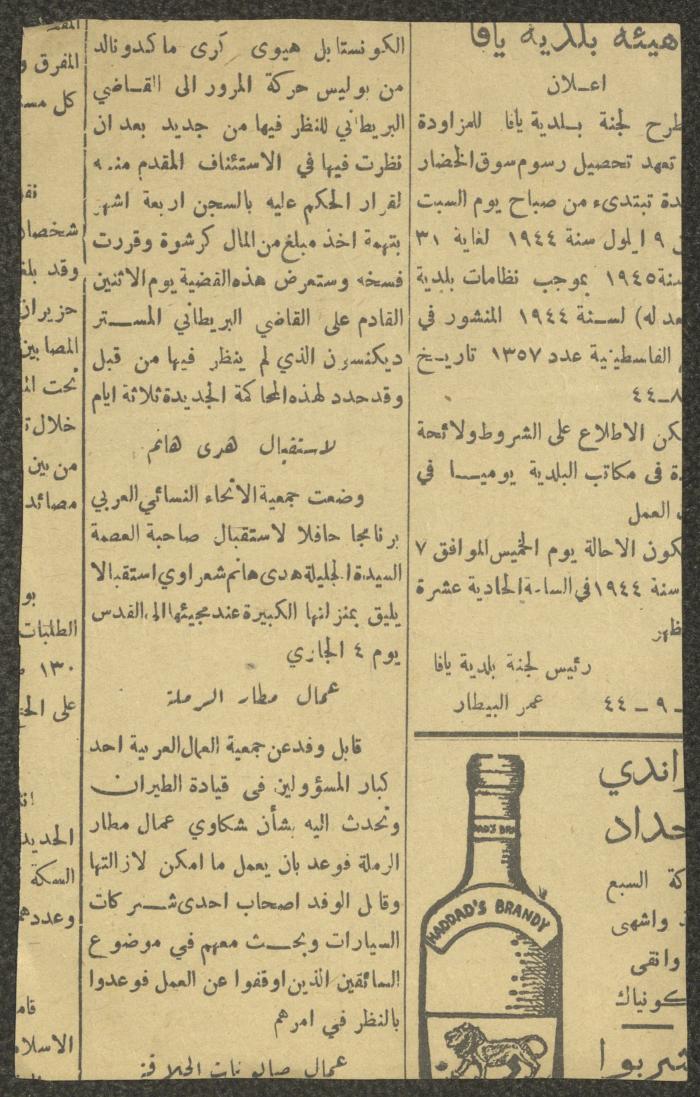 هيئة بلدية يافا
اعـلان
طرح لجنة بـلدية يافا للمزاودة
تعهد تحصيل رسوم سوق الخضار
دة تبتدىء من صباح يوم السبت
٩ ايلول سنة ١٩٤٤ لغاية ٣١
سنة ١٩٤٥ بموجب نظامات بلدية
عد له) لسـنة ١٩٤٤ المنشور في
الفلسطينية عدد ١٣٥٧ تاريـخ
٨ـ٤٤
كن الاطلاع على الشروط ولائحة
ة فى مكاتب البلدية يوميـا في
العمل
كون الاحالة يوم الخميس الموافق ٧
سنة ١٩٤٤ في الساعة الحادية عشرة
ظهر
رئيس لجنة بلدية يافا
ـ ٩ ـ ٤٤ عمر البيطار
راندي
حداد
كة السبع
ذ واشهى
وانقى
كونياك
شربوا
HADDAD'S BRANDY
الكونستابل هيوى آرى ماكدونالد
من بوليس حركة المرور الى القـاضي
البريطاني للنظر فيها من جديد بعد ان
نظرت فيها في الاستئناف المقدم منه
لقرار الحكم عليه بالسجن اربعة اشهر
بتهمة اخذ مبلغ من المال كرشوة وقررت
فسخه وستعرض هذه القضية يوم الاثنين
القادم على القاضي البريطاني المسـتر
ديكنسون الذي لم ينظر فيها من قبل
وقد حدد لهذه المحاكمة الجديدة ثلاثة ايام
لاستقبال هدى هانم
وضعت جمعية الاتحاء النسائي العربي
برنامجا حافلا لاستقبال صاحبة العصمة
السيدة الجليلة هدى هانم شعراوي استقبالا
يليق بمنزلتها الكبيرة عند مجيئها الى القدس
يوم ٤ الجاري
عمال مطار الرملة
قابل وفد عن جمعية العمال العربية احد
كبار المسؤولين فى قيادة الطيران
وتحدث اليه بشأن شكاوي عمال مطار
الرملة فوعد بان يعمل ما امكن لازالتها
وقابل الوفد اصحاب احدى شـركات
السيارات وبحـث معهم في موضوع
السائقين الذين اوقفوا عن العمل فوعدوا
بالنظر في امرهم
عمال صالونات الحلاقة
المفرق و
كل مس
شخصا
وقد بلغ
حزيران
المصابين
تحت
خلال
من بين
مصائد
بو
الطلبات
١٣٠
على الح
الحديد
السكة
وعددهم
الاسلا